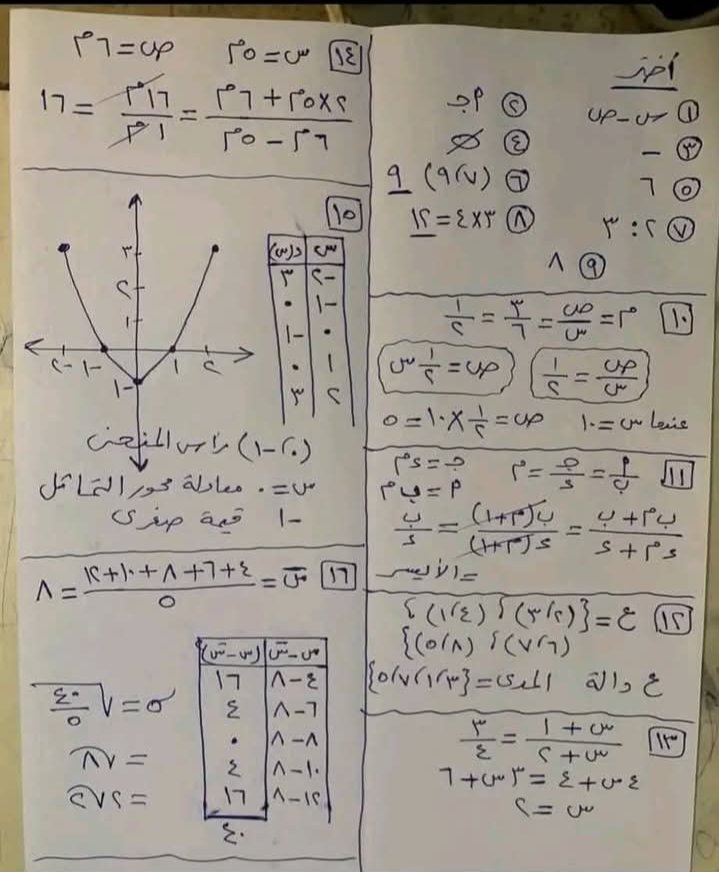 أختر
① س - ص ② م جـ
③ - ④ ∅
⑤ ٦ ⑥ (٩،٧) ٩
⑦ ٢ : ٣ ⑧ ٣×٤ = ١٢
⑨ ٨
١٠ م = ص/س = ٣/٦ = ١/٢
ص/س = ١/٢ ص = ١/٢ س
عندما س = ١٠ ص = ١/٢ × ١٠ = ٥
١١ أ/ب = جـ/د = م جـ = د م
أ = ب م
(ب م + ب)/(د م + د) = ب(م+١)/د(م+١) = ب/د
= الأيسر
١٢ ع = {(٣،٢)، (١،٤)،
(٧،٦)، (٥،٨)}
ع دالة المدى = {٥،٧،١،٣}
١٣ (س + ١)/(س + ٢) = ٣/٤
٤س + ٤ = ٣س + ٦
س = ٢
١٤ س = ٥م ص = ٦م
(٢×٥م + ٦م)/(٦م - ٥م) = ١٦م/١م = ١٦
١٥
س د(س)
-٢ ٣
-١ ٠
٠ -١
١ ٠
٢ ٣
٣
٢
١
-٢ -١ ١ ٢
-١
(٠، -١) رأس المنحنى
س = ٠ معادلة محور التماثل
-١ قيمة صغرى
١٦ س̄ = (٤+٦+٨+١٠+١٢)/٥ = ٨
س-س̄ (س-س̄)
٤-٨ ١٦
٦-٨ ٤
٨-٨ ٠
١٠-٨ ٤
١٢-٨ ١٦
٤٠
σ = √(٤٠/٥)
= √٨
= ٢√٢